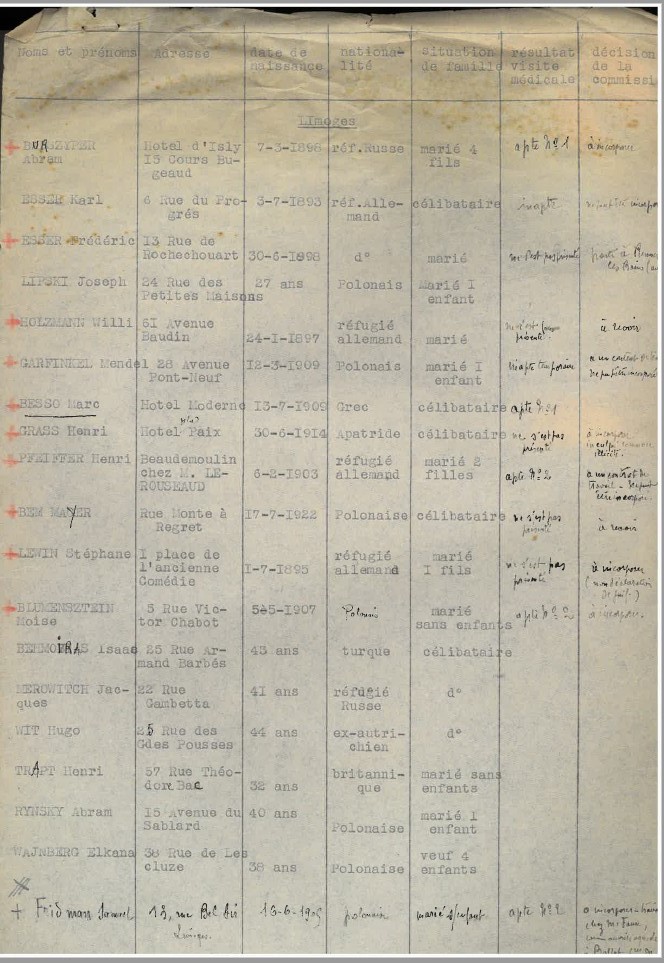 Noms et prénoms Adresse date de nationa- situation résultat décision
naissance lité de famille visite de la
médicale commissi
Limoges
BURSZYFER Hotel d'Isly 7-3-I898 réf.Russe marié 4 apte N° 1 à incorporer
Abram I5 Cours Bu- fils
geaud
ESSER Karl 6 Rue du Pro- 3-7-I893 réf.Alle- célibataire inapte
grés mand
ESSER Frédéric I3 Rue de
Rochechouart 30-6-I898 d° marié ne s'est pas présenté
LIPSKI Joseph 24 Rue des 27 ans Polonais Marié I
Petites Maisons enfant
HOLZMANN Willi 61 Avenue réfugié ne s'est pas à revoir
Baudin 24-I-I897 allemand marié présenté
GARFINKEL Mendel 28 Avenue I2-3-I909 Polonais marié I inapte temporaire
Pont-Neuf enfant
BESSO Marc Hotel Moderne I3-7-I909 Grec célibataire apte N°1
GRASS Henri Hotel Paix 30-6-I9I4 Apatride célibataire ne s'est pas à incorporer
présenté
PFEIFFER Henri Beaudemoulin réfugié marié 2 a un contrat de
chez M. LE- 6-2-I903 allemand filles apte N° 2 travail
ROUSEAUD
BEM MAYER Rue Monte à I7-7-I922 Polonaise célibataire ne s'est pas à revoir
Regret présenté
LEWIN Stéphane I place de réfugié marié ne s'est pas à incorporer
l'ancienne I-7-I895 allemand I fils présenté (non déclaration
Comédie
BLUMENSZTEIN 5 Rue Vic- 5-5-I907 Polonais marié apte N° 2 à incorporer
Moise tor Chabot sans enfants
BENMOIRAS Isaac 25 Rue Ar- 43 ans turque célibataire
mand Barbés
MEROWITCH Jac- 22 Rue 4I ans réfúgié d°
ques Gambetta Russe
WIT Hugo 25 Rue des 44 ans ex-autri- d°
Gdes Pousses chien
TRAPT Henri 57 Rue Théo- britanni- marié sans
dore Bac 32 ans que enfants
RYNSKY Abram I5 Avenue du 40 ans marié I
Sablard Polonaise enfant
WAJNBERG Elkana 38 Rue de Les veuf 4
cluze 38 ans Polonaise enfants
Fridman Samuel 13, rue Bel Air 16-6-1905 polonais marié s/enfant apte N° 2 à incorporer
Limoges.